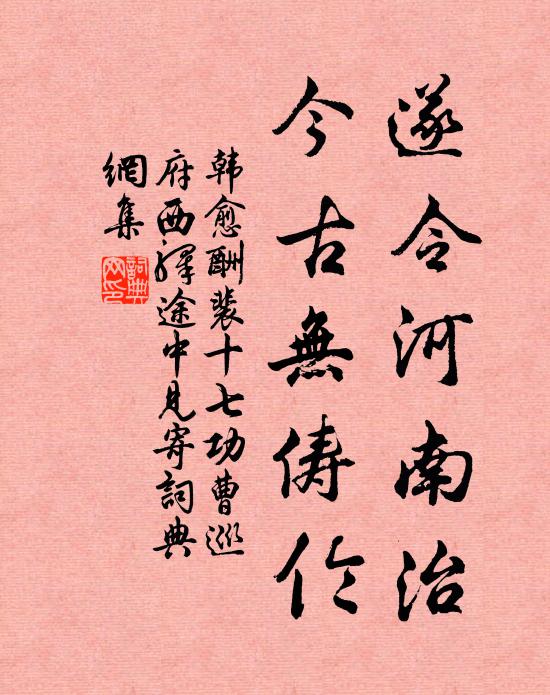 遂令河南治
今古無儔伦
韩愈酬裴十七功曹巡
府西驿途中見寄詞典
網集
詞典
网印